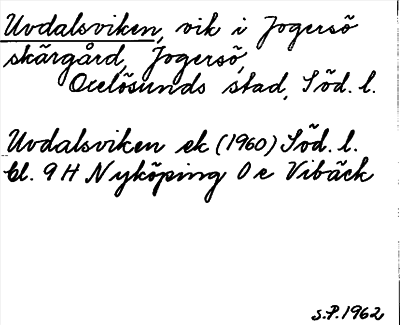 Uvdalsviken, vik i Jogersö
skärgård, Jogersö,
Oxelösunds stad, Söd. l.
Uvdalsviken ek (1960) Söd. l.
bl. 9 H Nyköping 0 e Vibäck
S.P. 1962